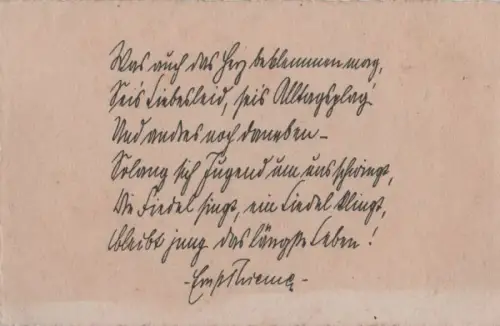 Was auch das Herz beklemmen mag,
Sei's Liebesleid, seis Alltagsplag'
Und andres noch daneben –
Solang sich Jugend um uns schwingt,
Die Fiedel singt, ein Liedel klingt,
bleibt jung das längste Leben!
- Ernst Thieme -